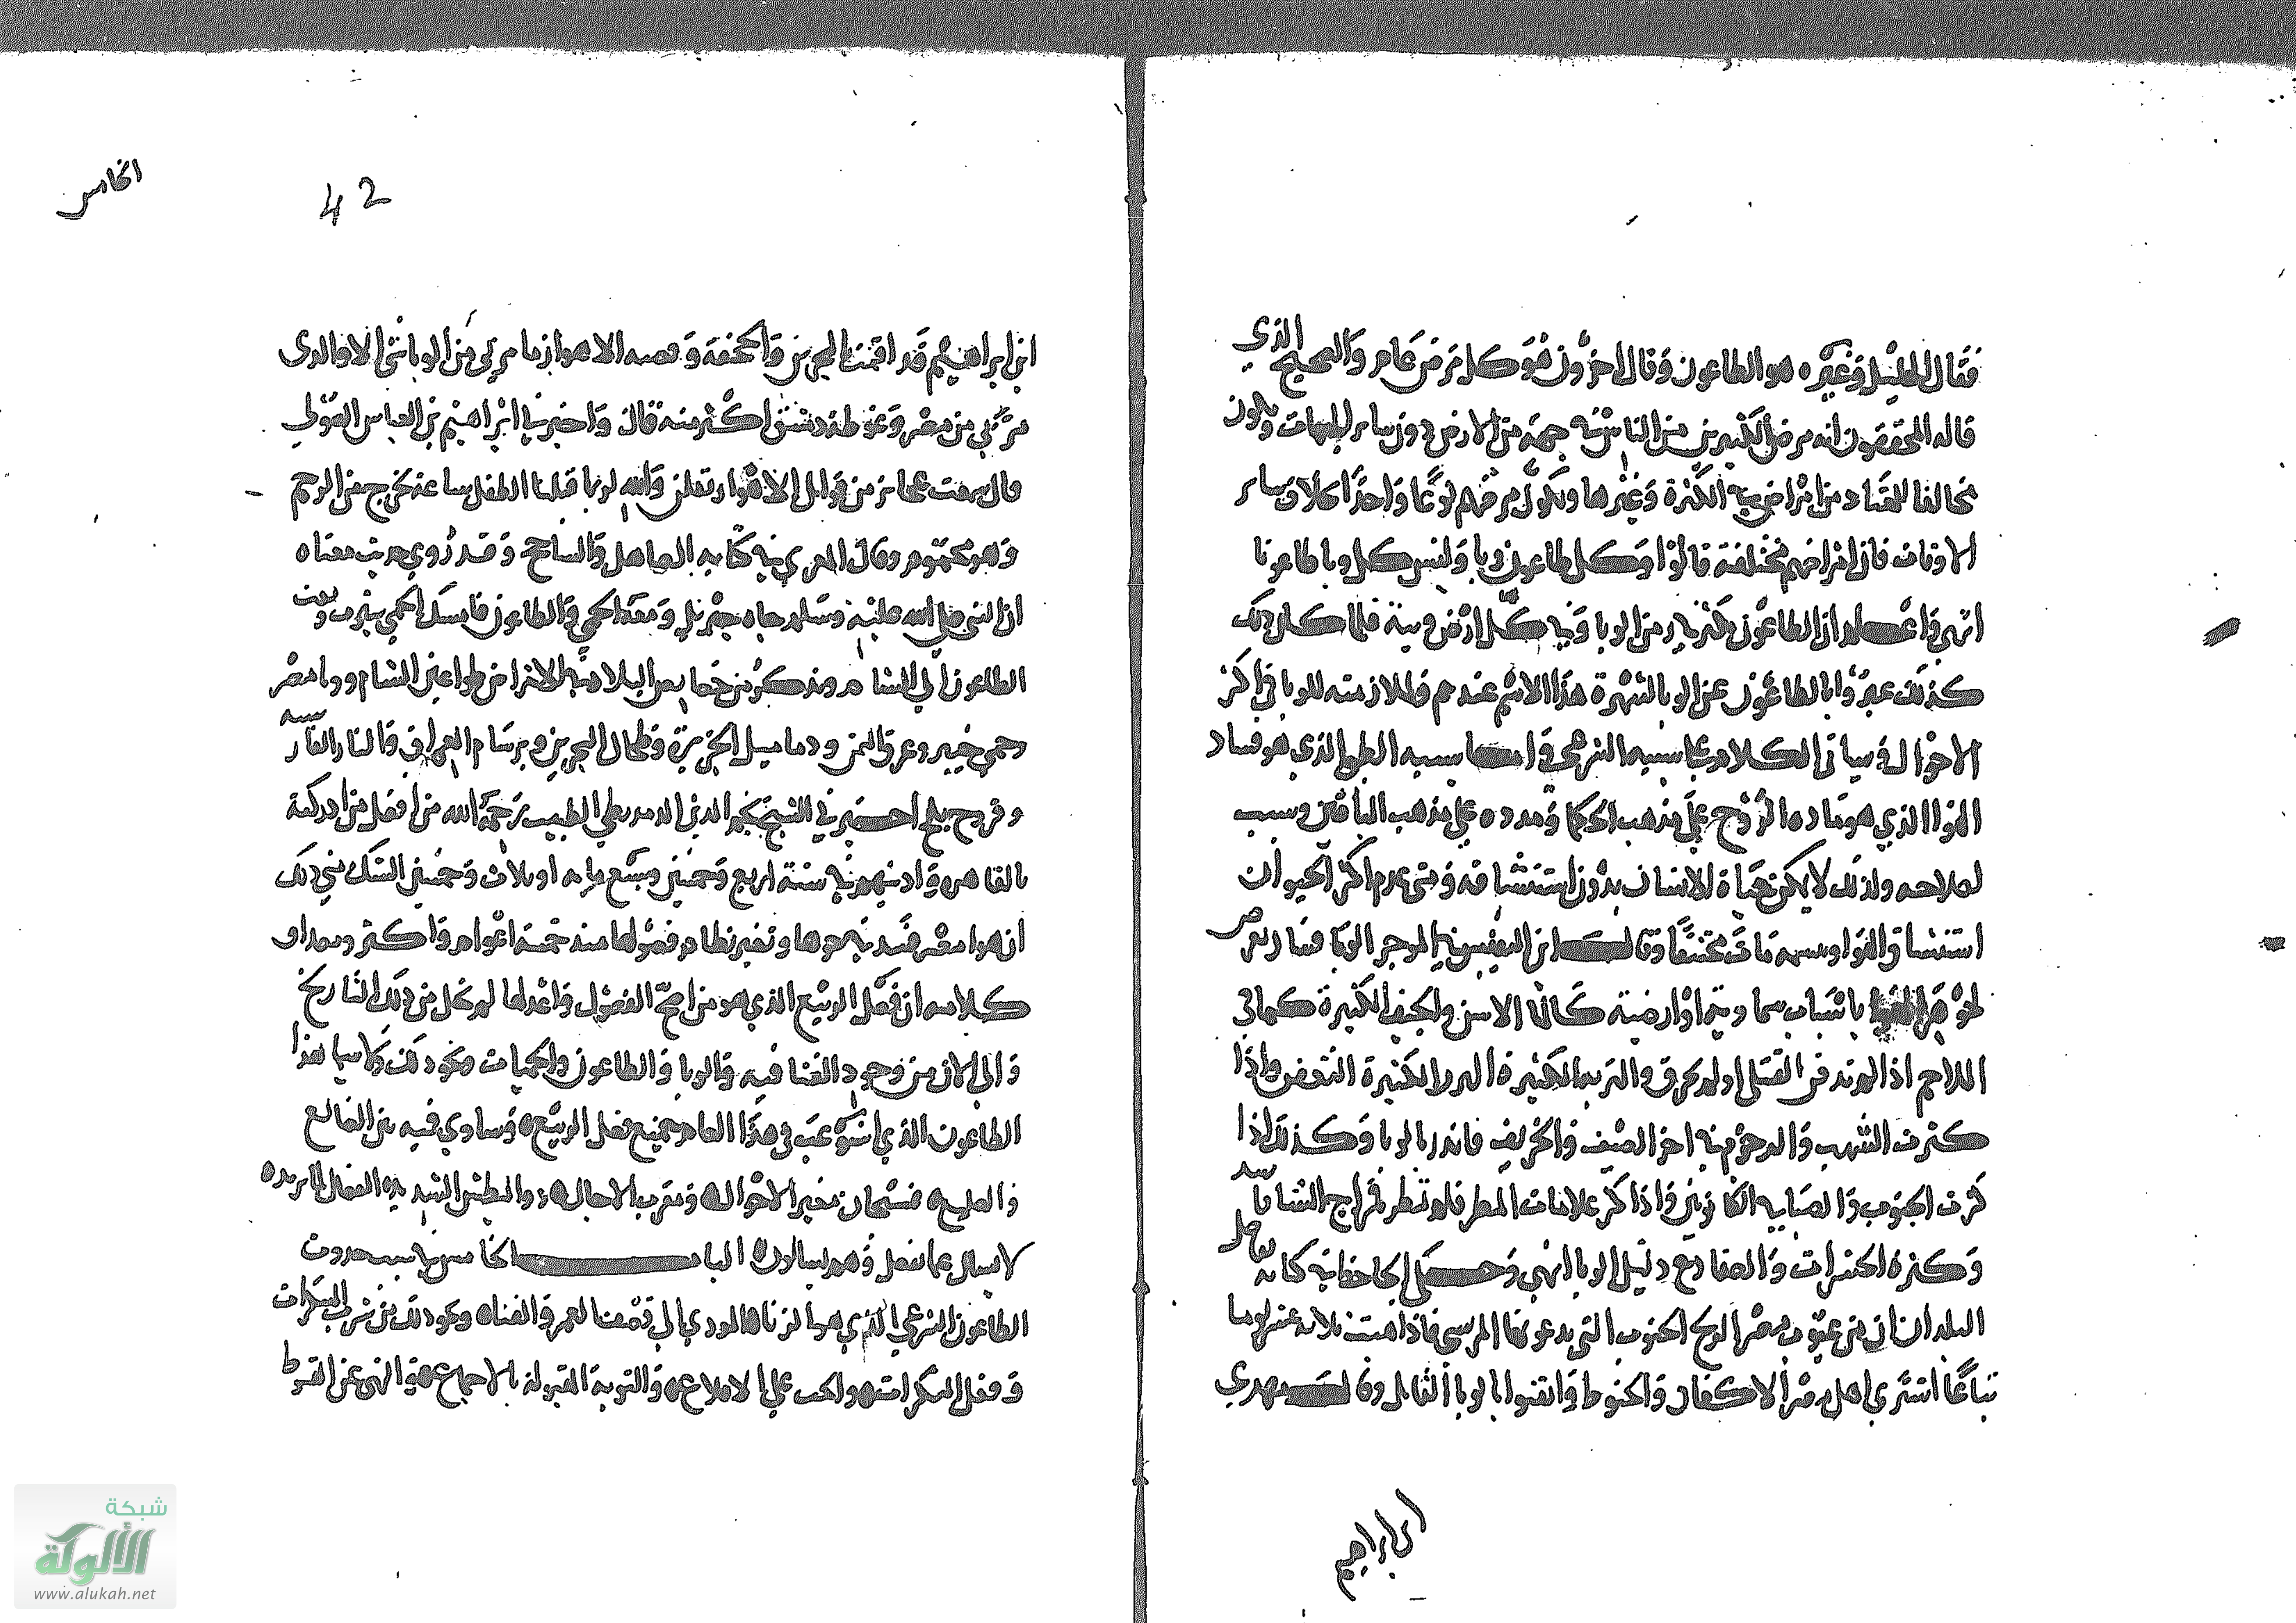 فقال الخليل وغيره هو الطاعون وقال اخرون هو كل مرض عام والصحيح الذي
قاله المحققون انه مرض الكثيرين من الناس في جهة من الارض دون ساير الجهات ويكون
مخالفا للمعتاد من امراض في الكثرة وغيرها ويكون مرضهم نوعا واحدا بخلاف ساير
الاوقات فان امراضهم مختلفة قالوا وكل طاعون وبا وليس كل وبا طاعونا
انتهى واعلم ان الطاعون يكثر من الوبا وفي كل ارض وبية فلما كان ذلك
كذلك عبروا بالطاعون عن الوبا لشهرة هذا الاسم عندهم ولملازمته للوبا في اكثر
الاحوال وسياتي الكلام على سببه الشرعي واما سببه الطبي الذي هو فساد
الهوا الذي هو مادة الروح على مذهب الحكما ومدده على مذهب الباقين وسبب
لصلاحه ولذلك لا يمكن حياة الانسان بدون استنشاقه ومتى عدم اكثر الحيوان
استنشاق الهوا مات مختنقا وقال ابن النفيس في الموجز الوبا فساد يعرض
لجوهر الهوا باسباب سماوية او ارضية كالما الاسن والجيف الكثيرة كما في
الملاحم اذا لم تدفن القتلى او لم تحرق والتربة الكثيرة النز الكثيرة التعفن واذا
كثرت الشهب والرجوم في اخر الصيف والخريف فانذر بالوبا وكذلك اذا
كثرت الجنوب والصبا في الكانونين واذا كثر علامات المطر فلم تمطر فمزاج الشتا فاسد
وكثرة الحشرات والضفادع دليل الوبا انتهى وحكى الجاحظ في كتابه
البلدان ان من عيوب مصر الريح الجنوب التي يدعونها المريسي فاذا هبت ثلاثة عشر يوما
تباعا اشترى اهل مصر الاكفان والحنوط وايقنوا بالوبا القاتل وقال مهدي
ابن ابراهيم
42
الخامس
ابن ابراهيم قد اقمت بالبحرين والجحفة وقصبة الاهواز ما مر بي من الوبا شي الا والذي
مر بي من مصر وغوطة دمشق اكثر منه قال واخبرني ابراهيم بن العباس الصولي
قال سمعت عجايز من قوابل الاهواز تقلن والله لربما قبلنا الطفل ساعة يخرج من الرحم
وهو محموم وقال المعري في كتابه الصاهل والشاحج وقد روي حديث معناه
ان النبي صلى الله عليه وسلم جاه جبريل ومعه الحمى والطاعون فامسك الحمى بيثرب وبعث
الطاعون الى الشام ويذكر من خصايص البلاد في الامراض طواعين الشام ووبا مصر
وحمى خيبر وعرق اليمن ودماميل الجزيرة وطحال البحرين وبرسام العراق والنار الفارسية
وقروح بلخ اخبرني الشيخ نجم الدين الطبيب رحمه الله من افضل من ادركته
بالقاهرة وادبهم في سنة اربع وخمسين وسبع ماية او ثلاث وخمسين الشك مني ذلك
ان هوا مصر فسد وتغير نظام فصولها منذ خمسة اعوام واكثر
كلامه ان فصل الربيع الذي هو من اصح الفصول واعدلها لم يخل من ذلك التاريخ
والى الان من وجود الفنا فيه والوبا والطاعون والحميات ونحو ذلك لا سيما هذا
الطاعون الذي استوعب في هذا العام جميع فصل الربيع وساوى فيه بين الضالع
والصليع فسبحان مغير الاحوال ومقرب الاجال والبطش الشديد الفعال لما يريده
لا يسال عما يفعل وهم يسالون الباب الخامس في سبب حدوث
الطاعون الشرعي الذي هو الزنا المودي الى قصف العمر والفنا ونحو ذلك من شرب المسكرات
وفعل المنكرات والحث على الاقلاع والتوبة المقبولة بالاجماع والنهي عن القنوط
شبكة
الألوكة
www.alukah.net